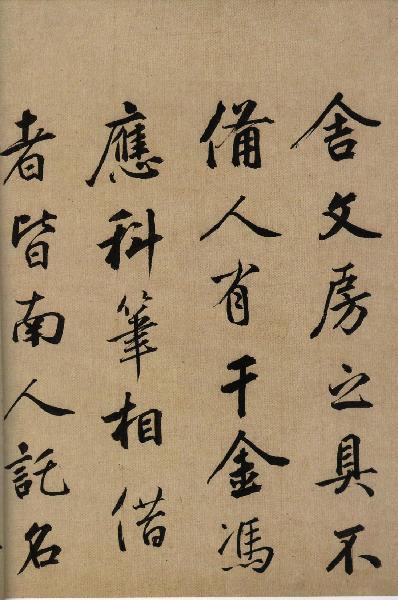 舍文房之具不
備人省干金馮
應科筆相借
者皆南人託名